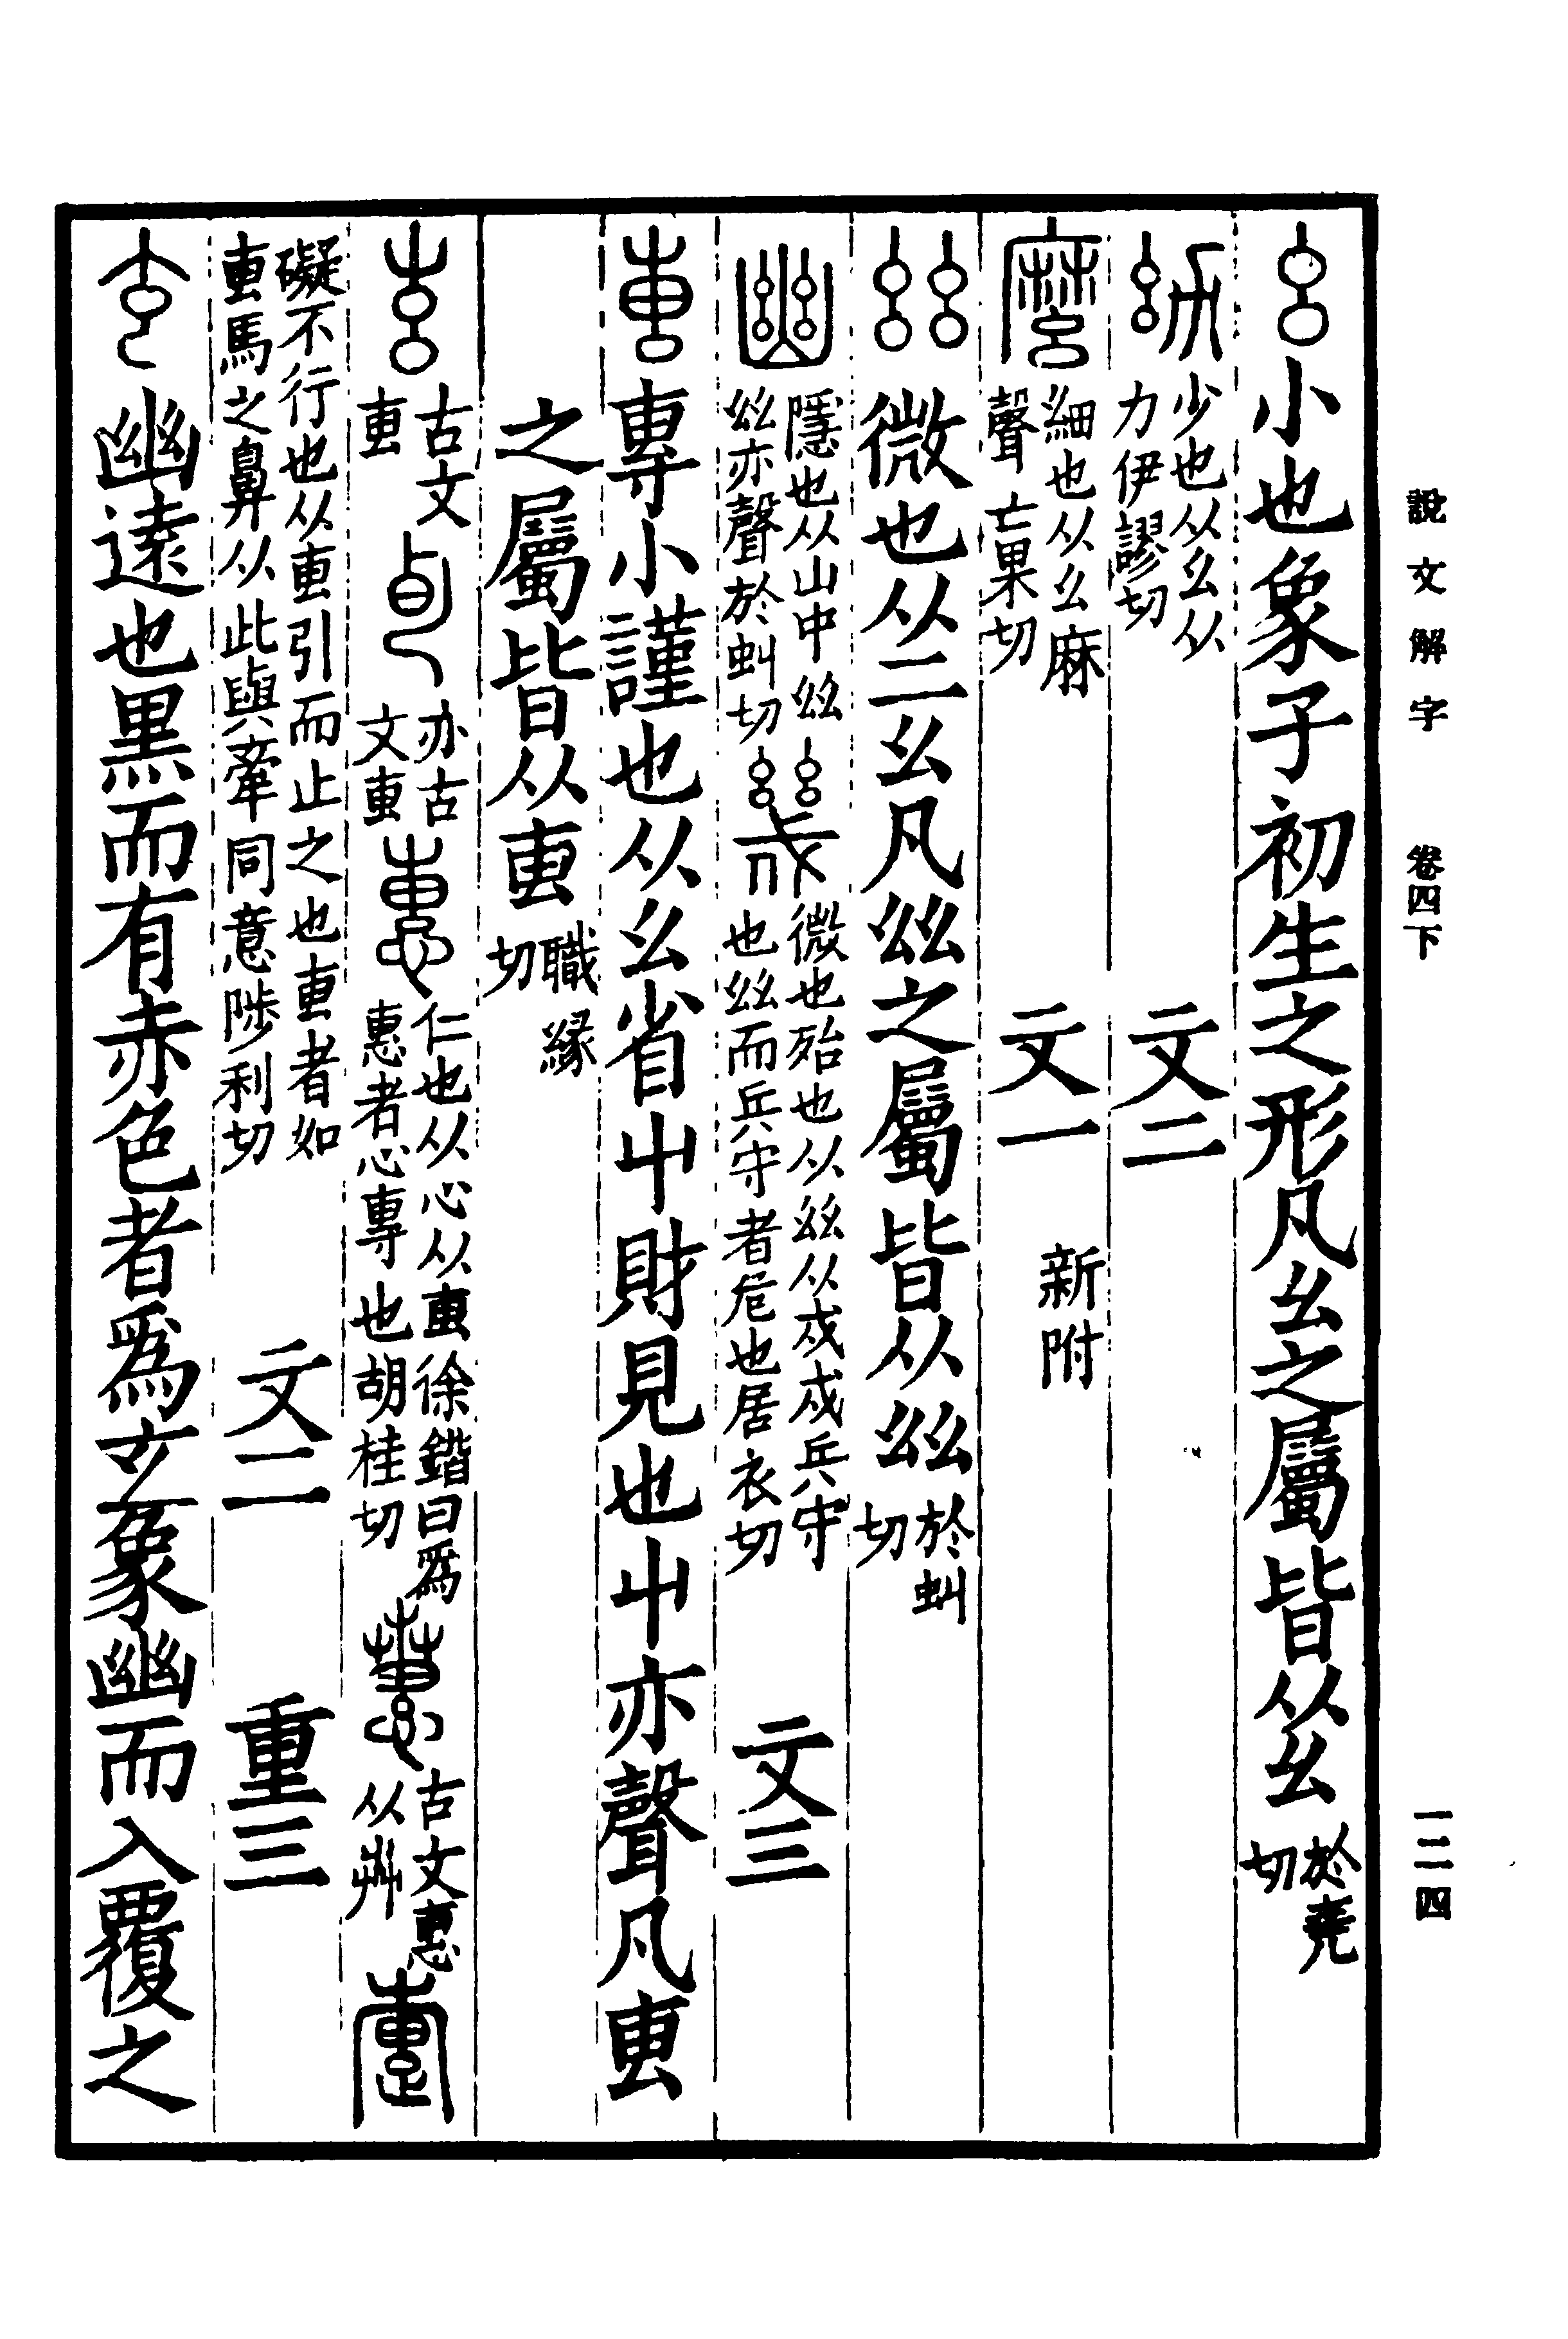 說文解字　卷四下　一二四
幺小也象子初生之形凡幺之屬皆从幺於堯切
幼少也从幺从力伊謬切　文二
麽細也从幺麻聲亡果切　文一　新附
𢆶微也从二幺凡𢆶之屬皆从𢆶於虯切
幽隱也从山中𢆶𢆶亦聲於虯切幾微也殆也从𢆶从戍戍兵守也𢆶而兵守者危也居衣切　文三
叀專小謹也从幺省屮財見也屮亦聲凡叀
之屬皆从叀職緣切
古文叀亦古文叀惠仁也从心从叀徐鍇曰爲惠者心專也胡桂切古文惠从芔疐
礙不行也从叀引而止之也叀者如叀馬之鼻从此與牽同意陟利切　文二　重三
玄幽遠也黑而有赤色者爲玄象幽而入覆之